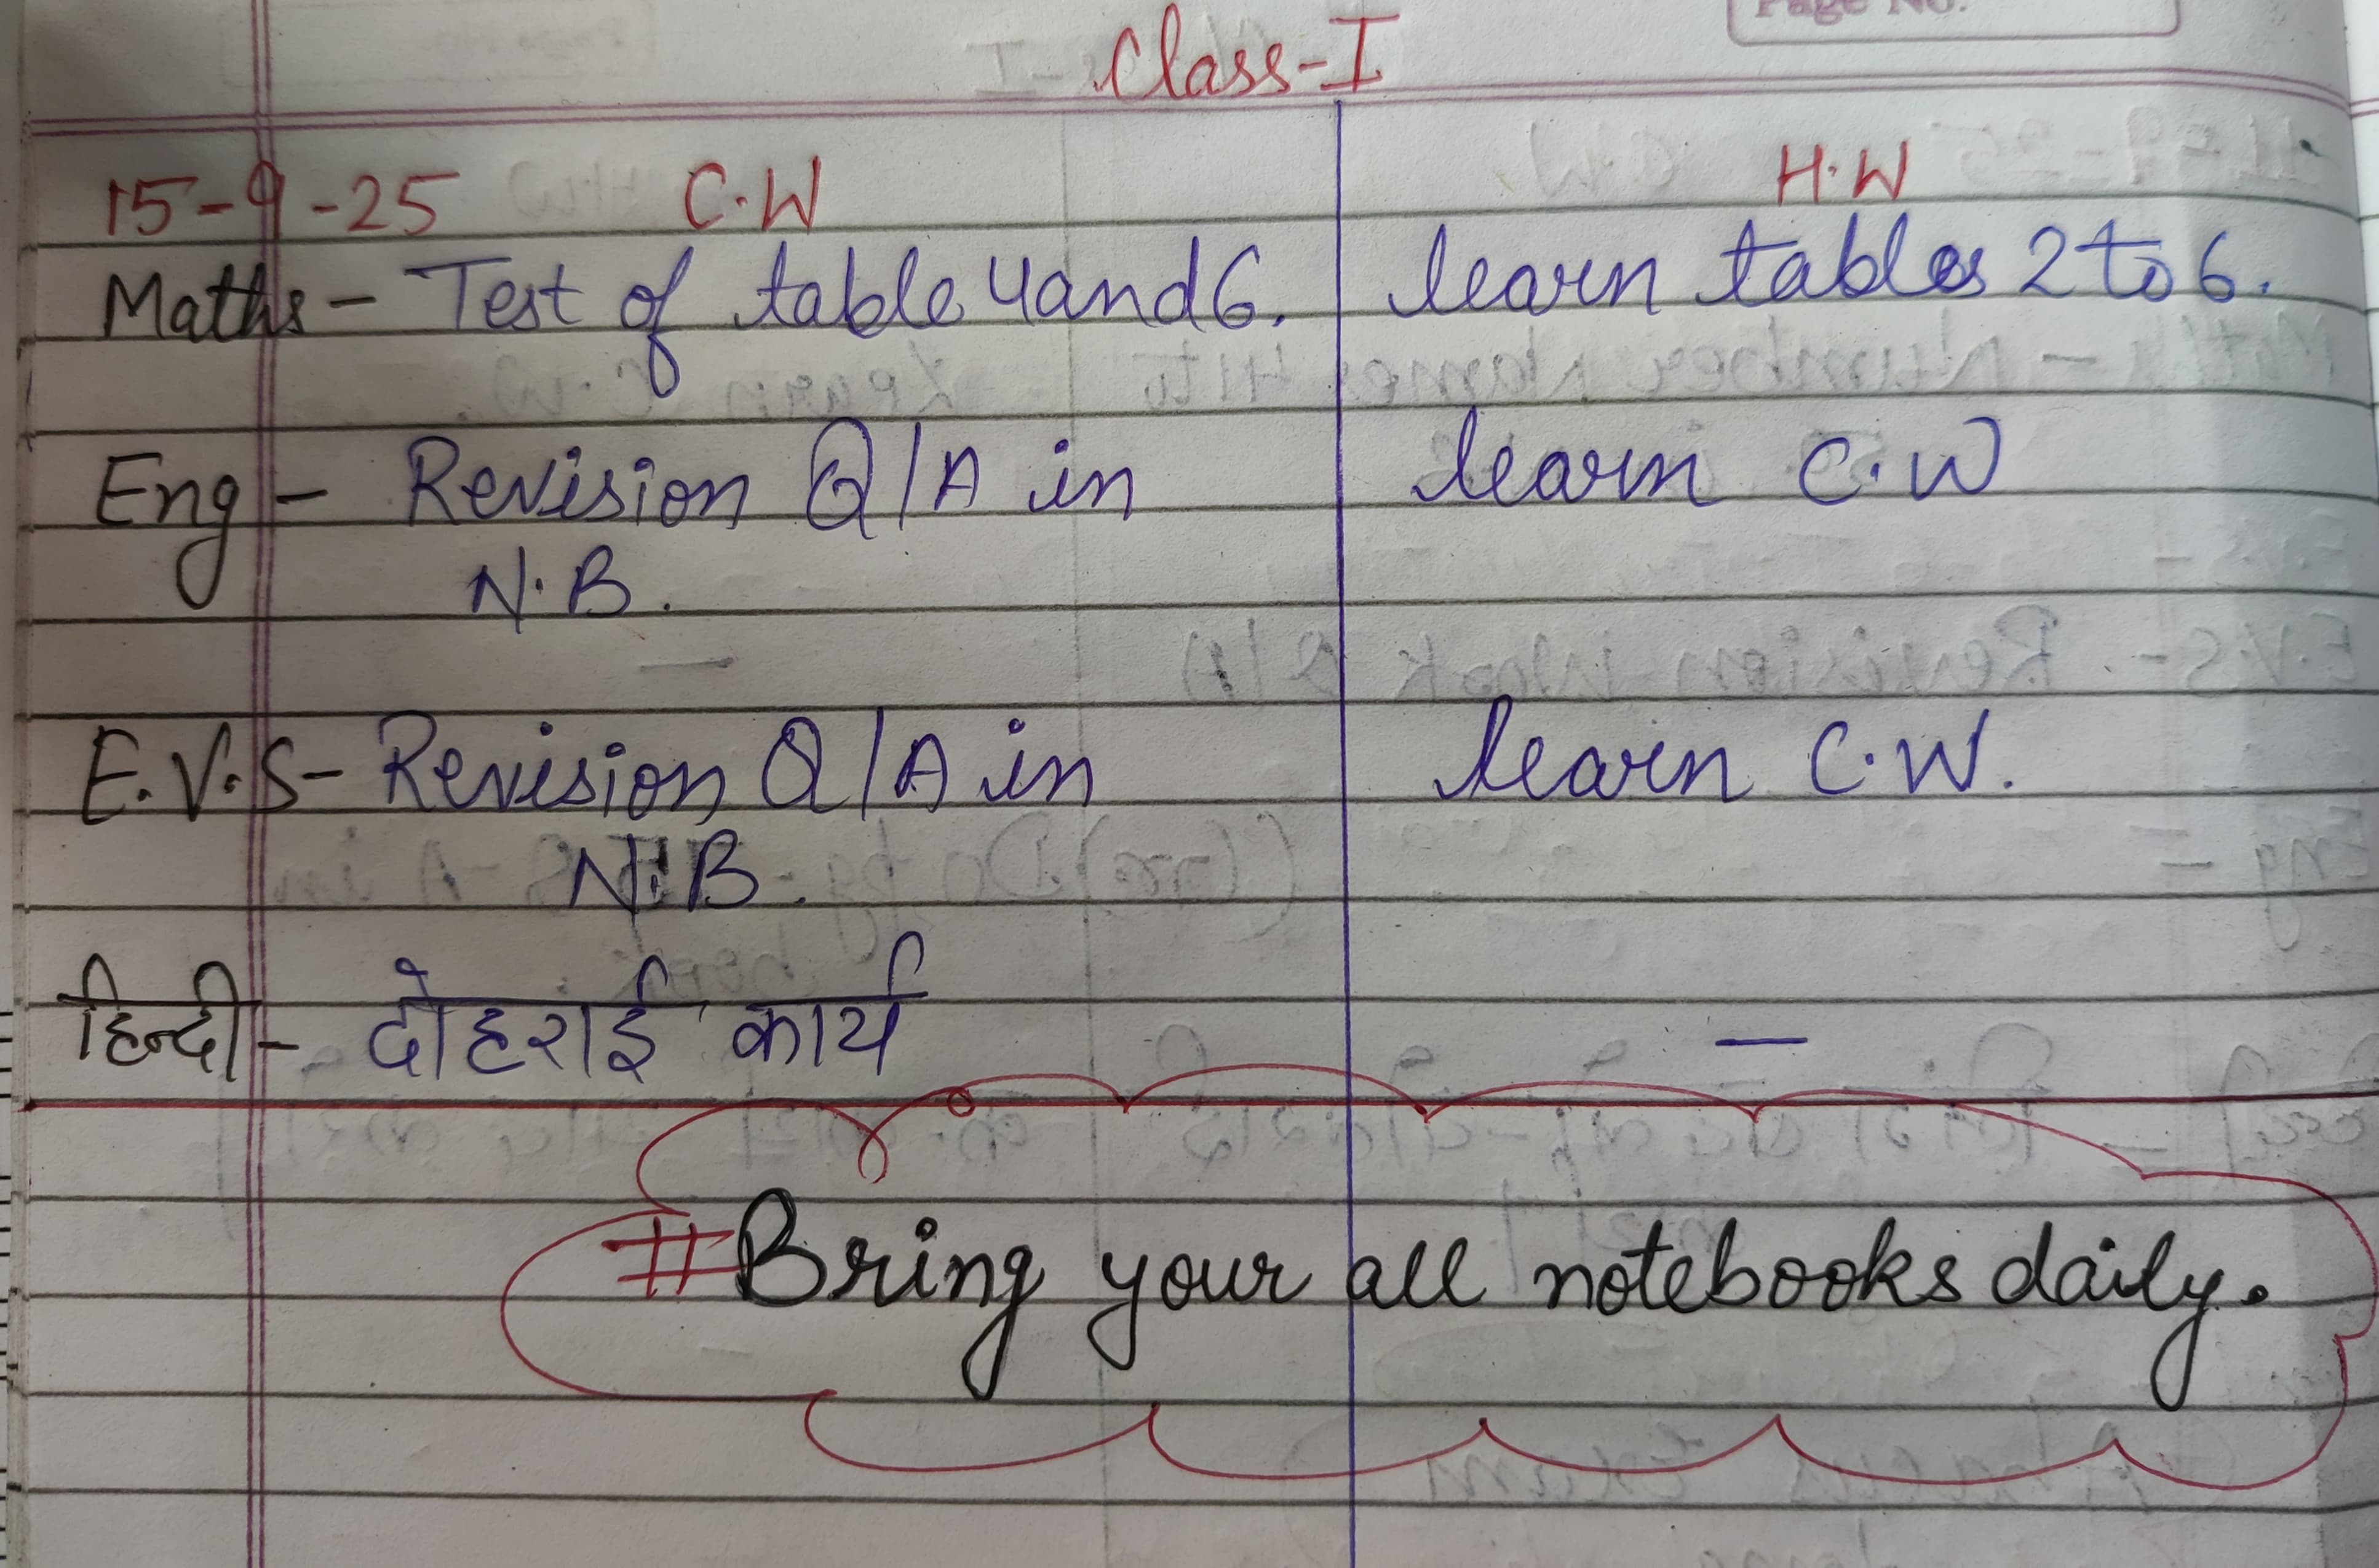 Page No.
Class-I
15-9-25 C.W H.W
Maths- Test of table 4 and 6. learn tables 2 to 6.
Eng - Revision Q/A in learn C.W
N.B.
E.V.S- Revision Q/A in learn C.W.
N.B.
हिन्दी- दोहराई कार्य —
#Bring your all notebooks daily.